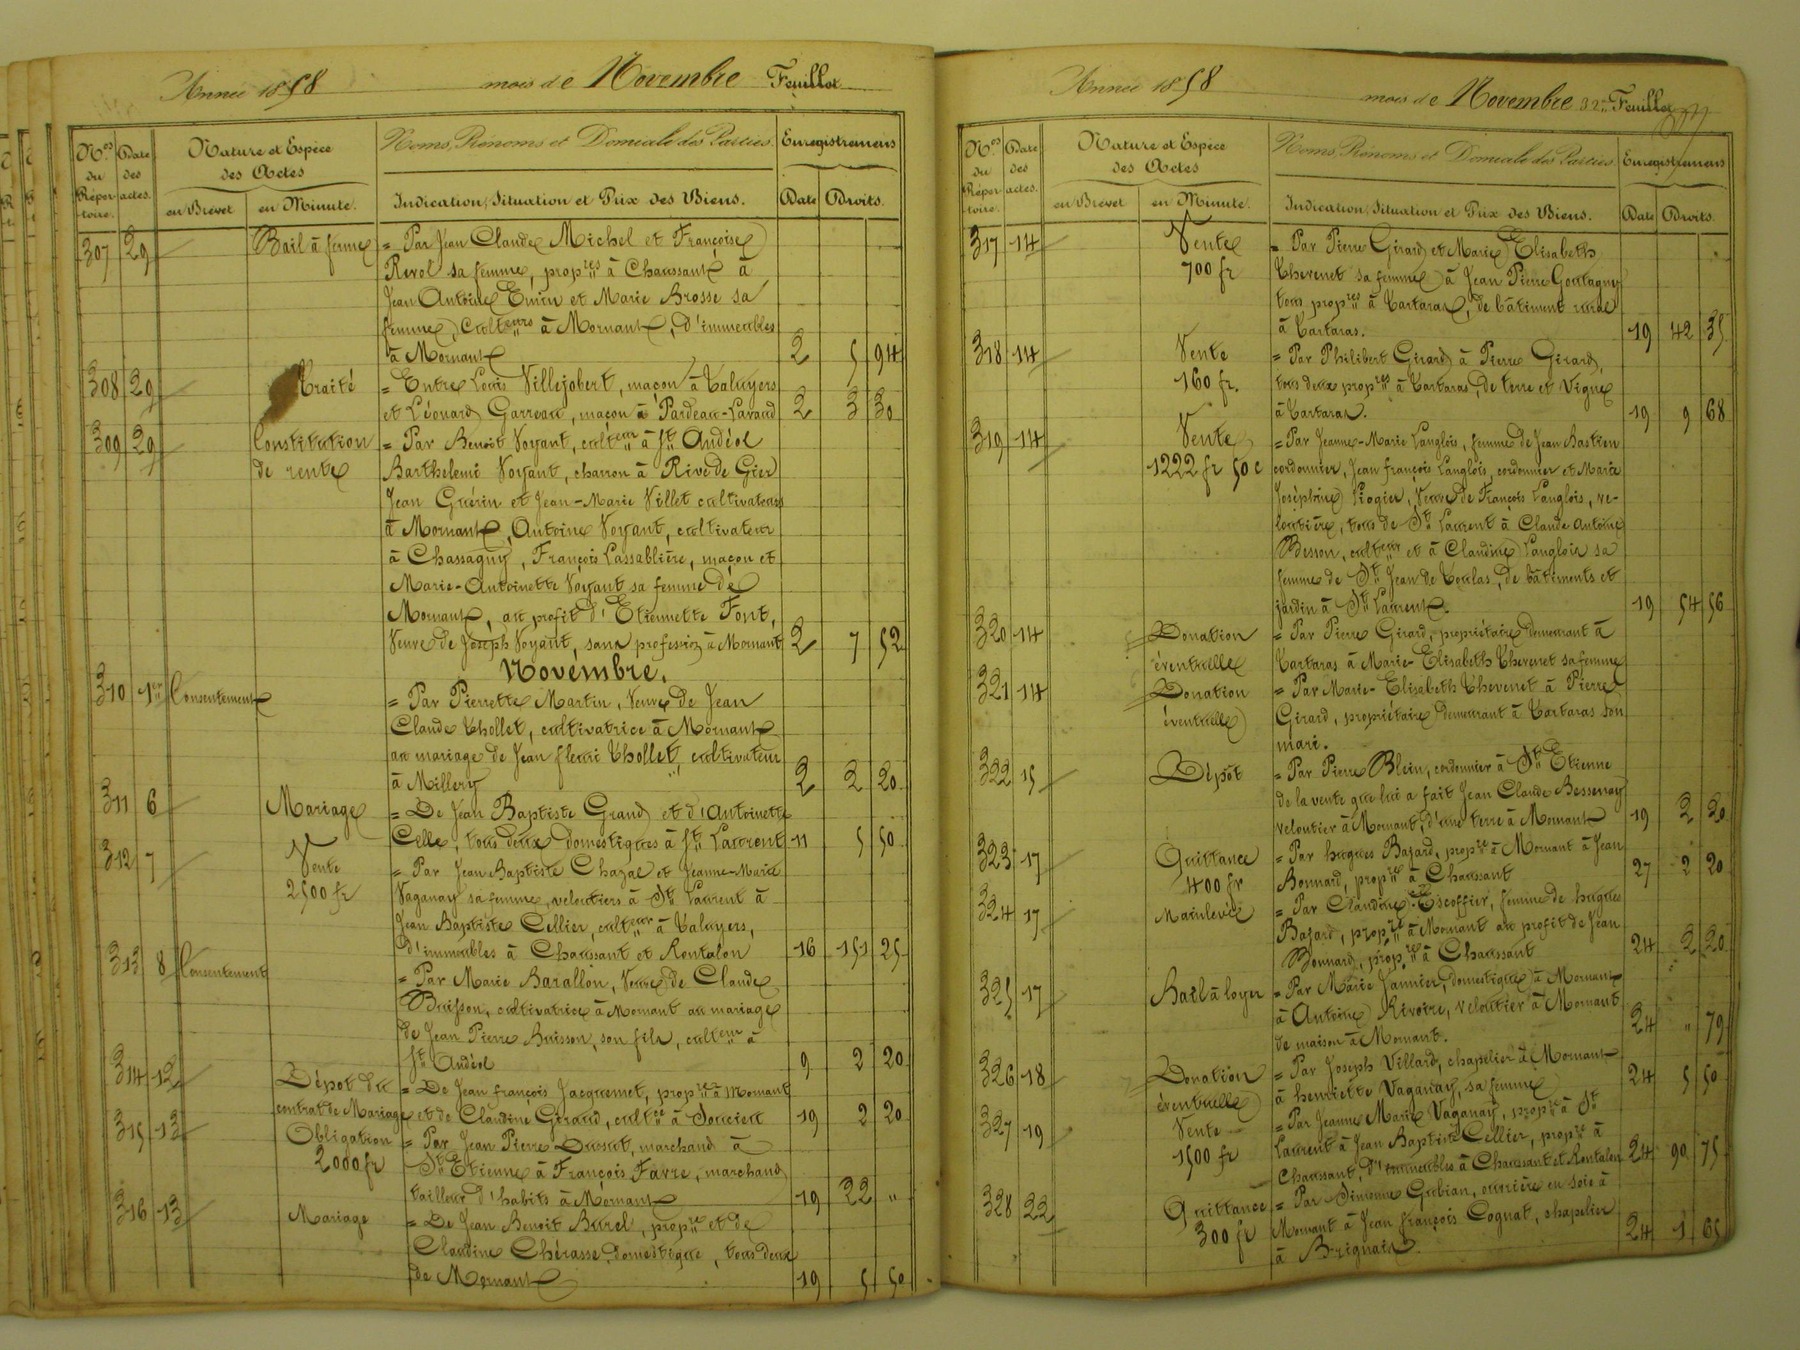 Année 1858 mois de Novembre Feuillet
Nos du Répertoire. Date des actes. Nature et Espèce des Actes Noms, Prénoms et Domicile des Parties Enregistremens
en Brevet en Minute. Indication, Situation et Prix des Biens. Date Droits.
307 29 Bail à ferme = Par Jean Claude Michel et Françoise
Revol sa femme, propres à Chaussant à
Jean Antoine Emin et Marie Brosse sa
femme, culteurs à Mornant, d'immeubles
à Mornant 2 5 94
308 29 Traité = Entre Louis Villejobert, maçon à Taluyers
et Léonard Garreau, maçon à Pardeau-Lavaud 2 3 30
309 29 Constitution = Par Benoît Voyant, culteur à St Andéol
de rente Barthelemi Voyant, charron à Rive de Gier
Jean Guérin et Jean-Marie Villet cultivateurs
à Mornant, Antoine Voyant, cultivateur
à Chassagny, François Lassablière, maçon et
Marie-Antoinette Voyant sa femme de
Mornant, au profit d'Etiennette Font,
Veuve de Joseph Voyant, sans profession à Mornant 2 7 52
Novembre.
310 1er Consentement = Par Pierrette Martin, Veuve de Jean
Claude Thollet, cultivatrice à Mornant
au mariage de Jean fleuri Thollet, cultivateur
à Millery 2 2 20
311 6 Mariage = De Jean Baptiste Grand et d'Antoinette
Celle, tous deux domestiques à St Laurent 11 5 50
312 7 Vente = Par Jean Baptiste Chazal et Jeanne-Marie
2500 fr Vaganay sa femme, veloutiers à St Laurent à
Jean Baptiste Cellier, culteur à Taluyers,
d'immeubles à Chaussant et Rontalon 16 151 25
313 8 Consentement = Par Marie Barallon, Veuve de Claude
Buisson, cultivatrice à Mornant au mariage
de Jean Pierre Buisson, son fils, culteur à
St Andéol 9 2 20
314 12 Dépot du = De Jean françois Jacquemet, propre à Mornant
contrat de Mariage et de Claudine Girard, cultce à Sourcieu 19 2 20
315 13 Obligation = Par Jean Pierre Ducrut, marchand à
2000 fr St Etienne à François Favre, marchand
tailleur d'habits à Mornant 19 22 "
316 13 Mariage = De Jean Benoit Burel, propre et de
Claudine Chérasse domestique, tous deux
de Mornant 19 5 50
Année 1858 mois de Novembre 32e Feuillet
Nos du Répertoire. Date des actes. Nature et Espèce des Actes Noms, Prénoms et Domicile des Parties Enregistremens
en Brevet en Minute. Indication, Situation et Prix des Biens. Date Droits.
317 14 Vente = Par Pierre Girard et Marie Elisabeth
700 fr Thevenet sa femme à Jean Pierre Goutagny
tous propres à Tartaras, de bâtiment rural
à Tartaras. 19 42 35
318 14 Vente = Par Philibert Girard à Pierre Girard,
160 fr. tous deux propres à Tartaras, de terre et Vigne
à Tartaras. 19 9 68
319 14 Vente = Par Jeanne-Marie Langlois, femme de Jean Bastien
1222 fr 50 c cordonnier, Jean françois Langlois, cordonnier et Marie
Joséphine Piogier, Veuve de François Langlois, ve-
loutière, tous de St Laurent à Claude Antoine
Besson, culteur et à Claudine Langlois sa
femme de St Jean de Touslas, de bâtiments et
jardin à St Laurent. 19 54 56
320 14 Donation = Par Pierre Girard, propriétaire demeurant à
éventuelle Tartaras à Marie-Elisabeth Thevenet sa femme
321 14 Donation = Par Marie-Elisabeth Thevenet à Pierre
éventuelle Girard, propriétaire demeurant à Tartaras son
mari.
322 15 Dépôt = Par Pierre Blein, cordonnier à St Etienne
de la vente que lui a fait Jean Claude Bessenay
veloutier à Mornant, d'une terre à Mornant 19 2 20
323 17 Quittance = Par hugues Bajard, propre à Mornant à Jean
400 fr Bonnard, propre à Chaussant 27 2 20
324 17 Mainlevée = Par Claudine Escoffier, femme de hugues
Bajard, propre à Mornant au profit de Jean
Bonnard, propre à Chaussant 24 2 20
325 17 Bail à loyer = Par Marie Jannier, domestique à Mornant
à Antoine Rivoire, veloutier à Mornant
de maison à Mornant. 24 " 79
326 18 Donation = Par Joseph Villard, chapelier à Mornant
éventuelle à henriette Vaganay, sa femme 24 5 50
327 19 Vente = Par Jeanne Marie Vaganay, propre à St
1500 fr Laurent à Jean Baptiste Cellier, propre à
Chaussant, d'immeubles à Chaussant et Rontalon 24 90 75
328 22 Quittance = Par Simonne Gubian, ouvrière en soie à
300 fr Mornant à Jean françois Cognat, chapelier
à Brignais. 24 1 65